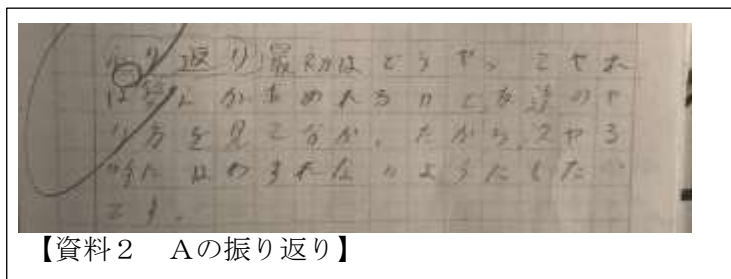 ふり返り 最初はどうやってやれ
ば答えが求めれるのか友達のや
り方を見て分かったから、次やる
時にはわすれないようにしたい
です。
【資料2 Aの振り返り】